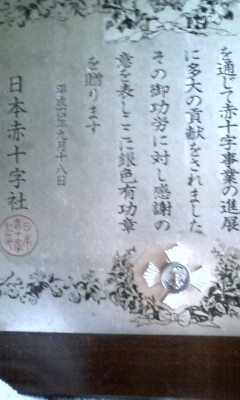 を通じて赤十字事業の進展
に多大の貢献をされました
その御功労に対し感謝の
意を表しここに銀色有功章
を贈ります
平成四年九月十八日
日本赤十字社